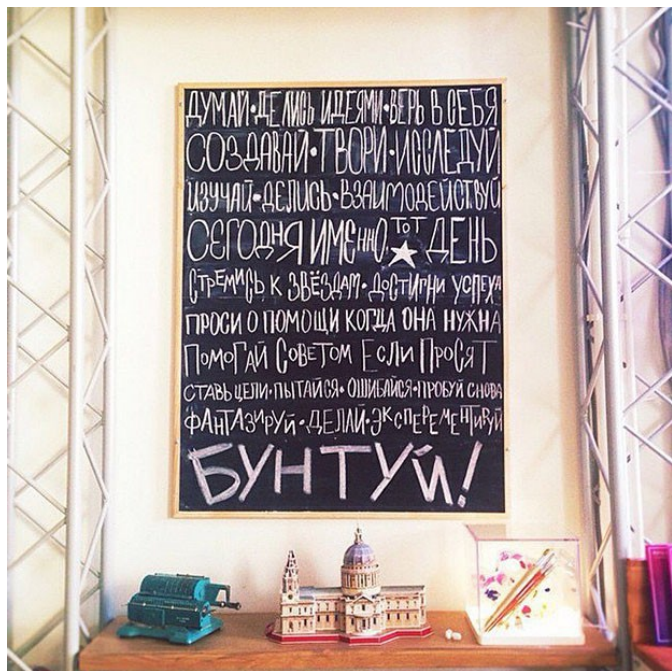 ДУМАЙ • ДЕЛИСЬ ИДЕЯМИ • ВЕРЬ В СЕБЯ
СОЗДАВАЙ • ТВОРИ • ИССЛЕДУЙ
ИЗУЧАЙ • ДЕЛИСЬ • ВЗАИМОДЕЙСТВУЙ
СЕГОДНЯ ИМЕННО ТОТ ДЕНЬ
СТРЕМИСЬ К ЗВЁЗДАМ • ДОСТИГНИ УСПЕХА
ПРОСИ О ПОМОЩИ КОГДА ОНА НУЖНА
ПОМОГАЙ СОВЕТОМ ЕСЛИ ПРОСЯТ
СТАВЬ ЦЕЛИ • ПЫТАЙСЯ • ОШИБАЙСЯ • ПРОБУЙ СНОВА
ФАНТАЗИРУЙ • ДЕЛАЙ • ЭКСПЕРЕМЕНТИРУЙ
БУНТУЙ!